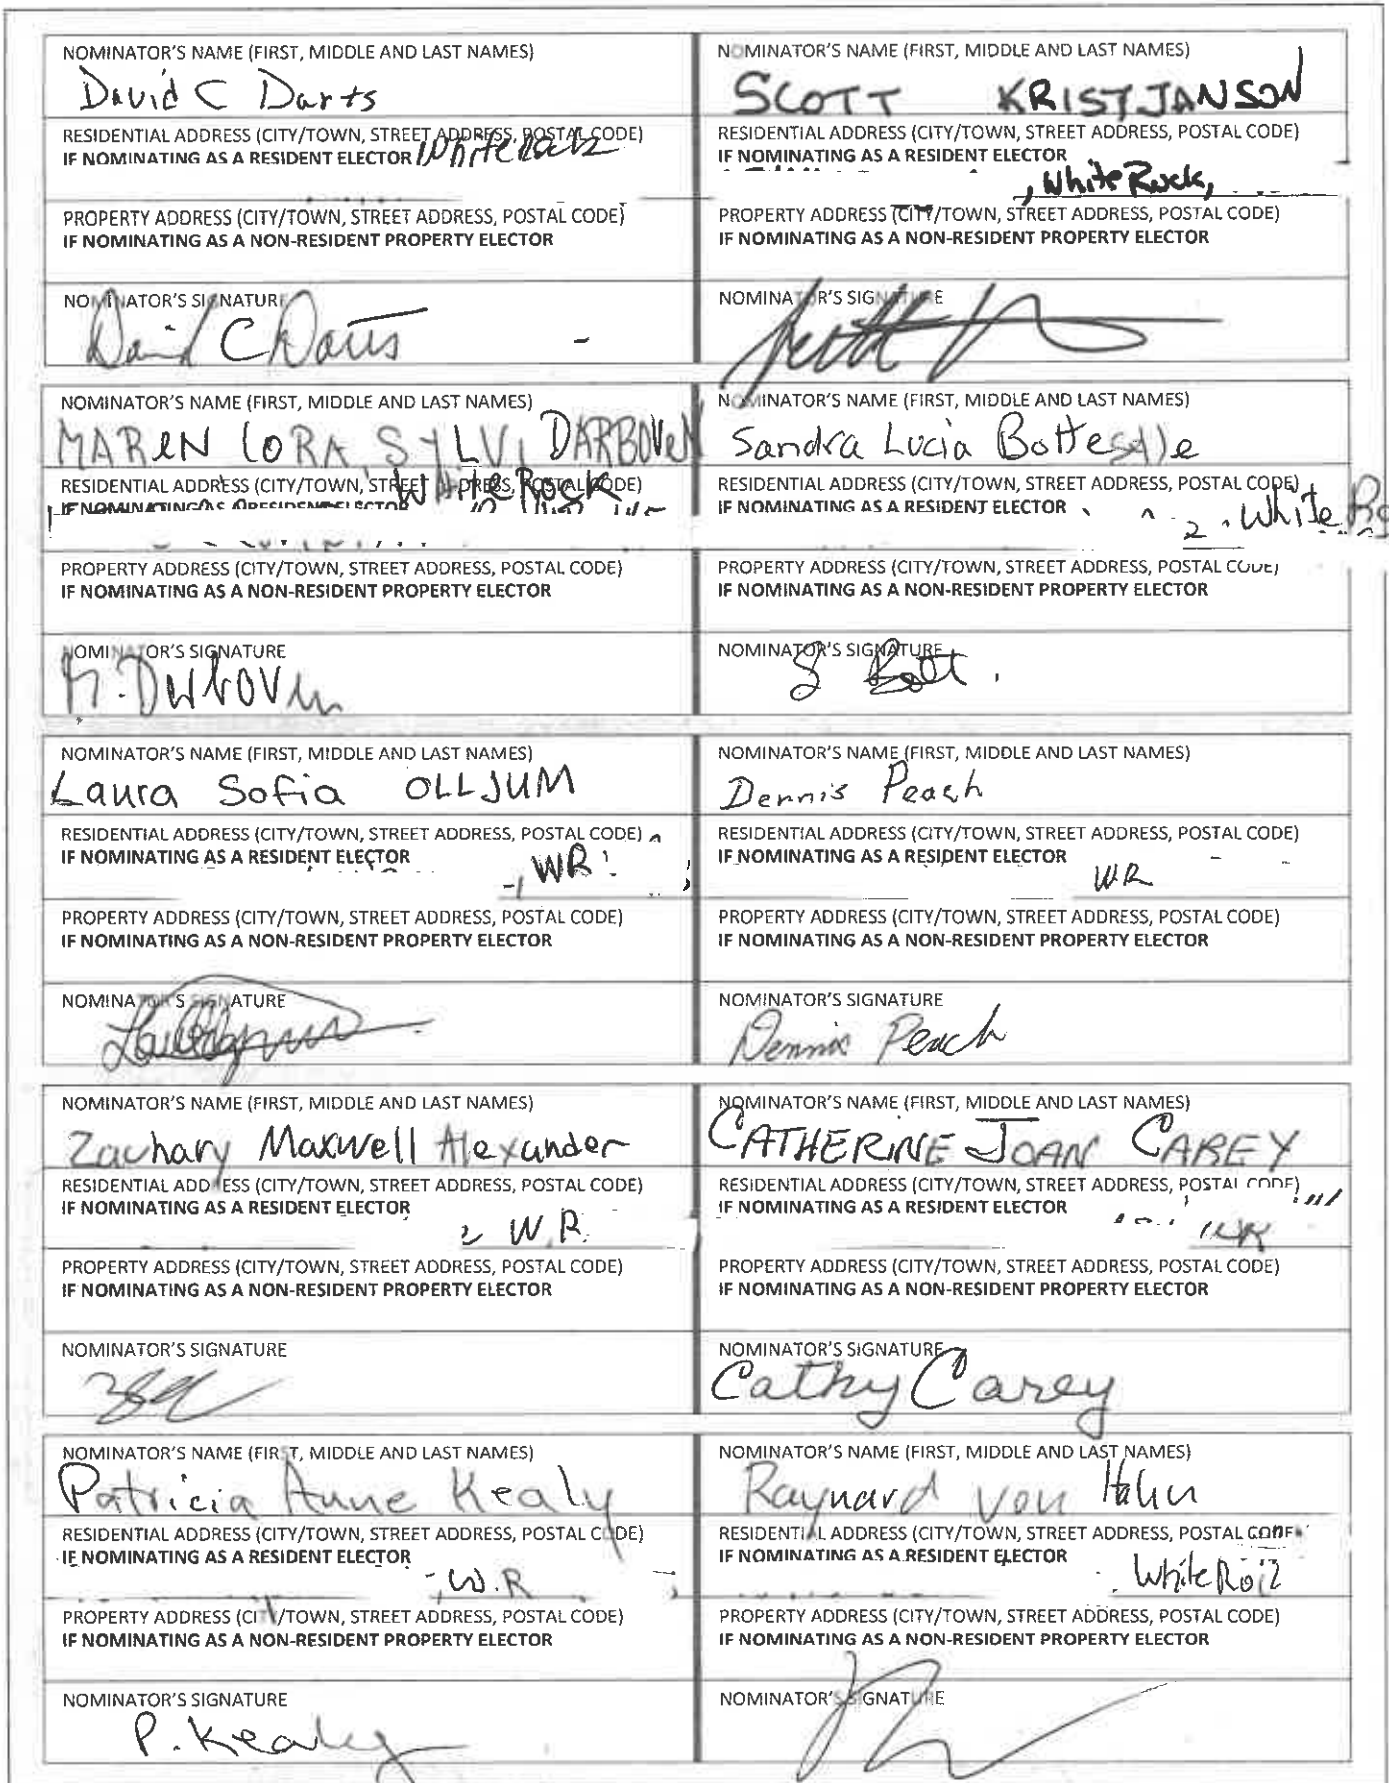 NOMINATOR'S NAME (FIRST, MIDDLE AND LAST NAMES)
David C Darts
RESIDENTIAL ADDRESS (CITY/TOWN, STREET ADDRESS, POSTAL CODE)
IF NOMINATING AS A RESIDENT ELECTOR White Rock
PROPERTY ADDRESS (CITY/TOWN, STREET ADDRESS, POSTAL CODE)
IF NOMINATING AS A NON-RESIDENT PROPERTY ELECTOR
NOMINATOR'S SIGNATURE
David C Darts
NOMINATOR'S NAME (FIRST, MIDDLE AND LAST NAMES)
SCOTT KRISTJANSON
RESIDENTIAL ADDRESS (CITY/TOWN, STREET ADDRESS, POSTAL CODE)
IF NOMINATING AS A RESIDENT ELECTOR
, White Rock,
PROPERTY ADDRESS (CITY/TOWN, STREET ADDRESS, POSTAL CODE)
IF NOMINATING AS A NON-RESIDENT PROPERTY ELECTOR
NOMINATOR'S SIGNATURE
NOMINATOR'S NAME (FIRST, MIDDLE AND LAST NAMES)
MAREN LORA SYLVI DARBOVEN
RESIDENTIAL ADDRESS (CITY/TOWN, STREET ADDRESS, POSTAL CODE)
White Rock
IF NOMINATING AS A RESIDENT ELECTOR
PROPERTY ADDRESS (CITY/TOWN, STREET ADDRESS, POSTAL CODE)
IF NOMINATING AS A NON-RESIDENT PROPERTY ELECTOR
NOMINATOR'S SIGNATURE
M. Darboven
NOMINATOR'S NAME (FIRST, MIDDLE AND LAST NAMES)
Sandra Lucia
RESIDENTIAL ADDRESS (CITY/TOWN, STREET ADDRESS, POSTAL CODE)
IF NOMINATING AS A RESIDENT ELECTOR
White Ro
PROPERTY ADDRESS (CITY/TOWN, STREET ADDRESS, POSTAL CODE)
IF NOMINATING AS A NON-RESIDENT PROPERTY ELECTOR
NOMINATOR'S SIGNATURE
S Bott.
NOMINATOR'S NAME (FIRST, MIDDLE AND LAST NAMES)
Laura Sofia OLLJUM
RESIDENTIAL ADDRESS (CITY/TOWN, STREET ADDRESS, POSTAL CODE)
IF NOMINATING AS A RESIDENT ELECTOR
, WR
PROPERTY ADDRESS (CITY/TOWN, STREET ADDRESS, POSTAL CODE)
IF NOMINATING AS A NON-RESIDENT PROPERTY ELECTOR
NOMINATOR'S SIGNATURE
NOMINATOR'S NAME (FIRST, MIDDLE AND LAST NAMES)
Dennis Peach
RESIDENTIAL ADDRESS (CITY/TOWN, STREET ADDRESS, POSTAL CODE)
IF NOMINATING AS A RESIDENT ELECTOR
WR
PROPERTY ADDRESS (CITY/TOWN, STREET ADDRESS, POSTAL CODE)
IF NOMINATING AS A NON-RESIDENT PROPERTY ELECTOR
NOMINATOR'S SIGNATURE
Dennis Peach
NOMINATOR'S NAME (FIRST, MIDDLE AND LAST NAMES)
Zachary Maxwell Alexander
RESIDENTIAL ADDRESS (CITY/TOWN, STREET ADDRESS, POSTAL CODE)
IF NOMINATING AS A RESIDENT ELECTOR
W.R.
PROPERTY ADDRESS (CITY/TOWN, STREET ADDRESS, POSTAL CODE)
IF NOMINATING AS A NON-RESIDENT PROPERTY ELECTOR
NOMINATOR'S SIGNATURE
NOMINATOR'S NAME (FIRST, MIDDLE AND LAST NAMES)
CATHERINE JOAN CAREY
RESIDENTIAL ADDRESS (CITY/TOWN, STREET ADDRESS, POSTAL CODE)
IF NOMINATING AS A RESIDENT ELECTOR
PROPERTY ADDRESS (CITY/TOWN, STREET ADDRESS, POSTAL CODE)
IF NOMINATING AS A NON-RESIDENT PROPERTY ELECTOR
NOMINATOR'S SIGNATURE
Cathy Carey
NOMINATOR'S NAME (FIRST, MIDDLE AND LAST NAMES)
Patricia Anne Kealy
RESIDENTIAL ADDRESS (CITY/TOWN, STREET ADDRESS, POSTAL CODE)
IF NOMINATING AS A RESIDENT ELECTOR
, W.R
PROPERTY ADDRESS (CITY/TOWN, STREET ADDRESS, POSTAL CODE)
IF NOMINATING AS A NON-RESIDENT PROPERTY ELECTOR
NOMINATOR'S SIGNATURE
P. Kealy
NOMINATOR'S NAME (FIRST, MIDDLE AND LAST NAMES)
Raynard von Hahn
RESIDENTIAL ADDRESS (CITY/TOWN, STREET ADDRESS, POSTAL CODE)
IF NOMINATING AS A RESIDENT ELECTOR
White Rock
PROPERTY ADDRESS (CITY/TOWN, STREET ADDRESS, POSTAL CODE)
IF NOMINATING AS A NON-RESIDENT PROPERTY ELECTOR
NOMINATOR'S SIGNATURE